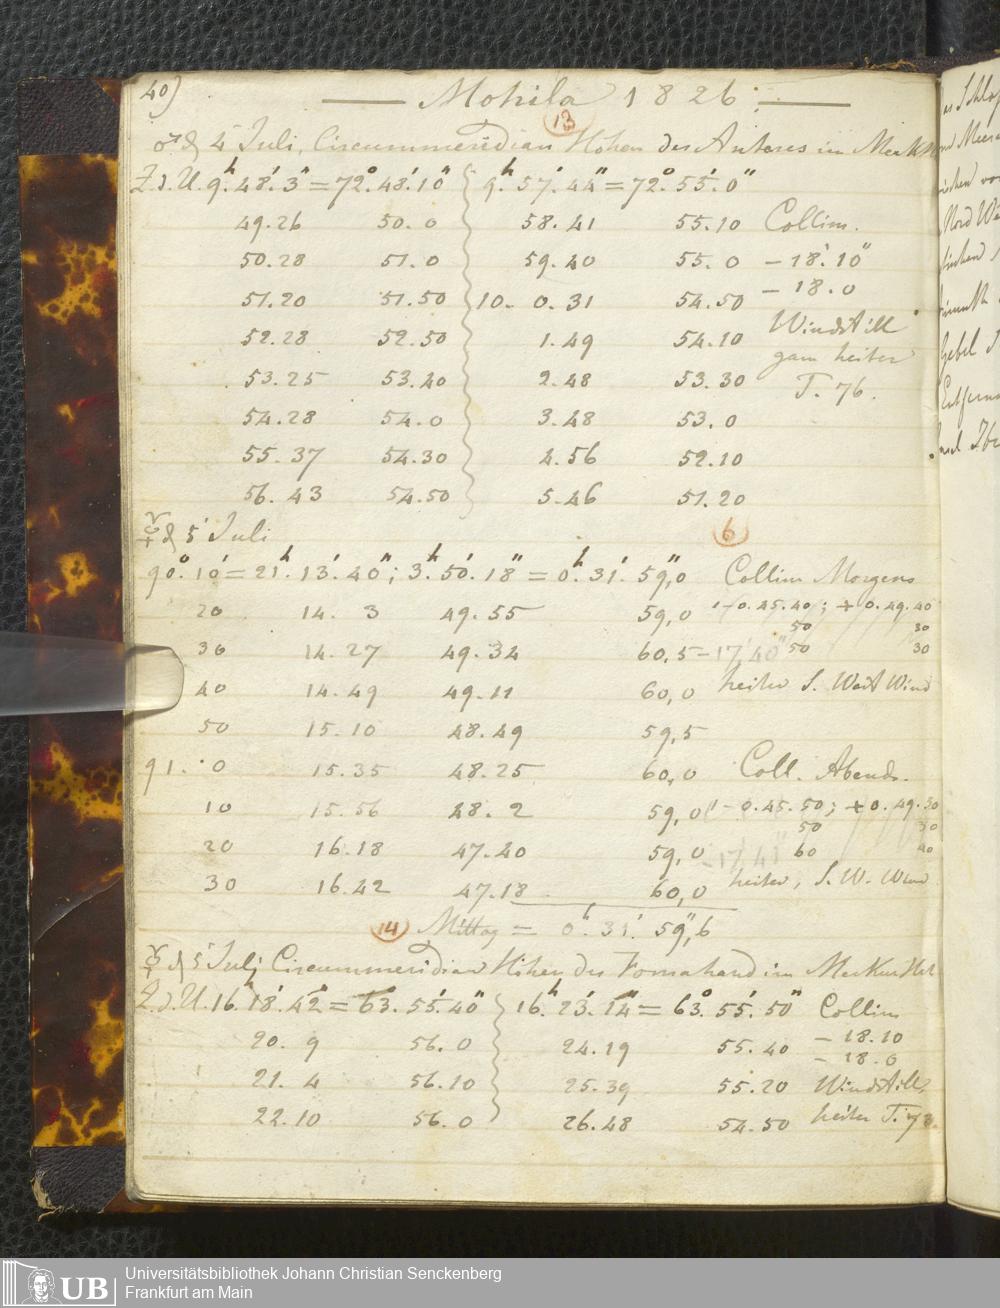 40)
Mohila 1826
13
♂ d 4 Juli, Circummeridian Höhen des Antares im Merk
Z.d.U. 9.h 48.' 3" = 72.° 48.' 10" 9.h 57.' 44" = 72.° 55.' 0"
49.26 50.0 58.41 55.10 Collim.
50.28 51.0 59.40 55.0 - 18.' 10"
51.20 51.50 10. 0.31 54.50 - 18.0
52.28 52.50 1.49 54.10 Windstill
53.25 53.40 2.48 53.30 ganz heiter
T. 76.
54.28 54.0 3.48 53.0
55.37 54.30 4.56 52.10
56.43 54.50 5.46 51.20
☿ d 5 Juli
6
90.° 10' = 21.h 13.' 40"; 3.h 50.' 18" = 0.h 31.' 59",0 Collim Morgens
20 14.3 49.55 59,0 - 0.45.40; + 0.49.40
50 30
30 14.27 49.34 60,5 - 17,' 40" 50 30
40 14.49 49.11 60,0 heiter S. West Wind
50 15.10 48.49 59,5
91. 0 15.35 48.25 60,0 Coll. Abends.
10 15.56 48.2 59,0 - 0.45.50; + 0.49.30
50 30
20 16.18 47.40 59,0 - 17,41" 60 40
30 16.42 47.18 60,0 heiter, S.W. Wind
14 Mittag = 0.h 31.' 59",6
☿ d 5 Juli Circummeridian Höhen des Fomahand im Merkur Hor
Z.d.U. 16.h 18.' 42" = 63.° 55.' 40" 16.h 23.' 14" = 63.° 55.' 50" Collim
20. 9 56.0 24.19 55.40 - 18.10
- 18.0
21. 4 56.10 25.39 55.20 Windstill,
22.10 56.0 26.48 54.50 heiter T. 73.
UB
Universitätsbibliothek Johann Christian Senckenberg
Frankfurt am Main